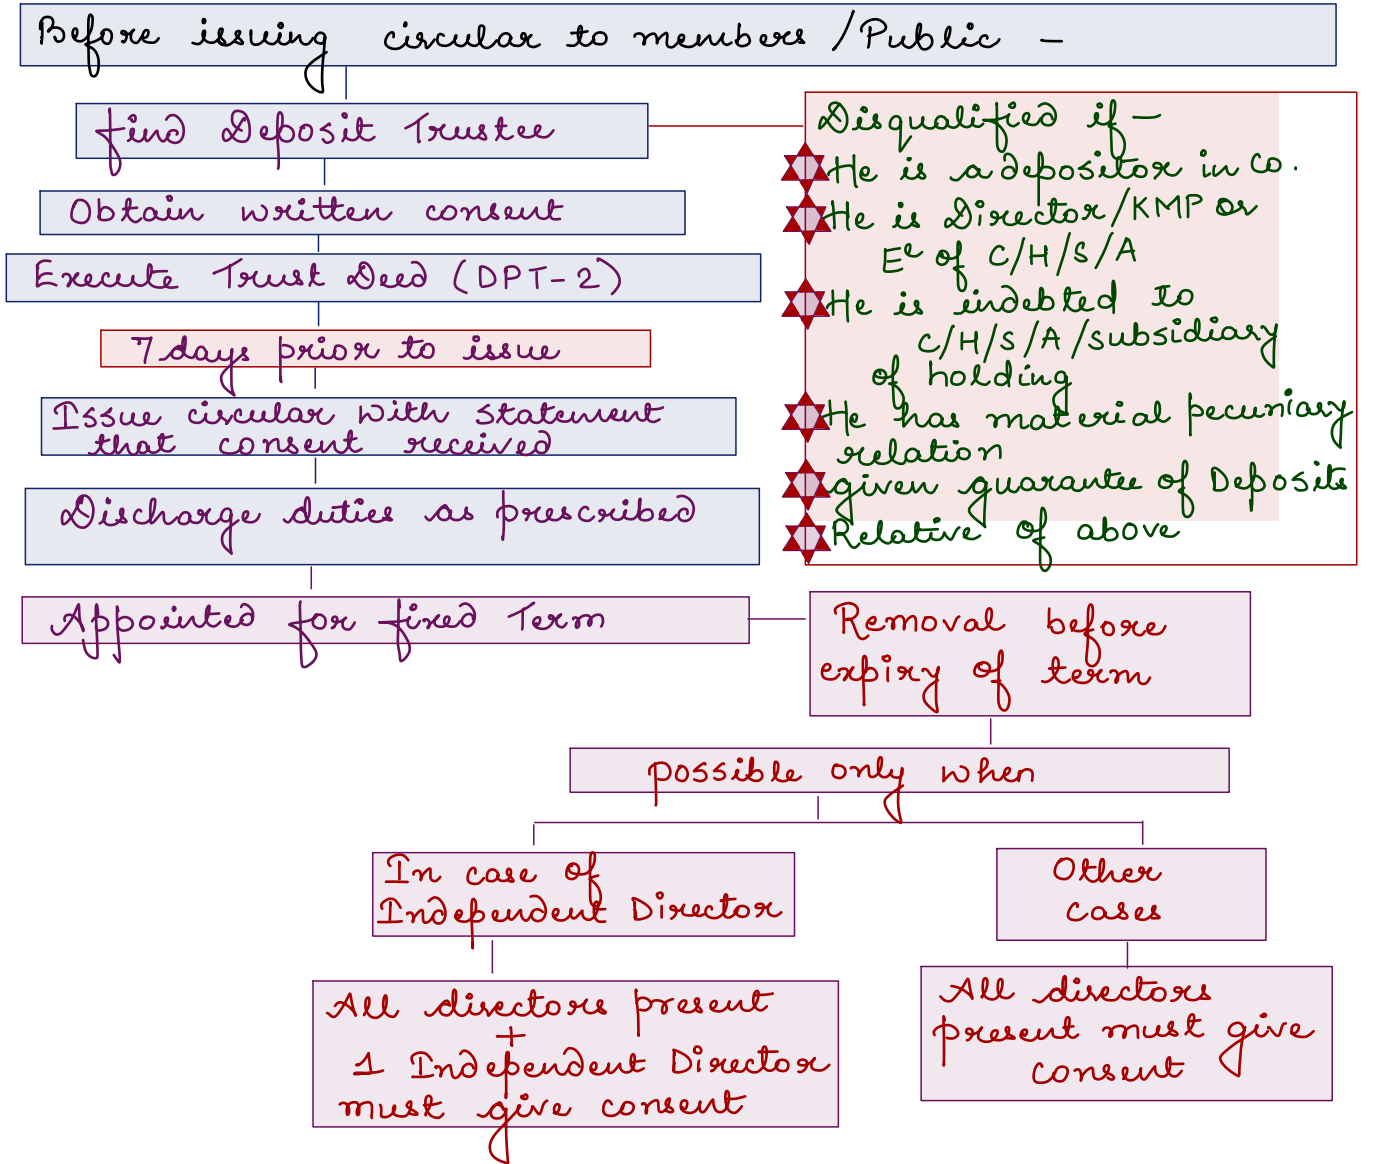 Before issuing circular to members / Public -
find Deposit Trustee
Obtain written consent
Execute Trust Deed (DPT-2)
7 days prior to issue
Issue circular with statement
that consent received
Discharge duties as prescribed
Appointed for fixed Term
Disqualified if -
He is a depositor in co.
He is Director/KMP or
Ee of C/H/S/A
He is indebted to
C/H/S/A/subsidiary
of holding
He has material pecuniary
relation
given guarantee of Deposits
Relative of above
Removal before
expiry of term
possible only when
In case of
Independent Director
All directors present
+
1 Independent Director
must give consent
Other
cases
All directors
present must give
consent